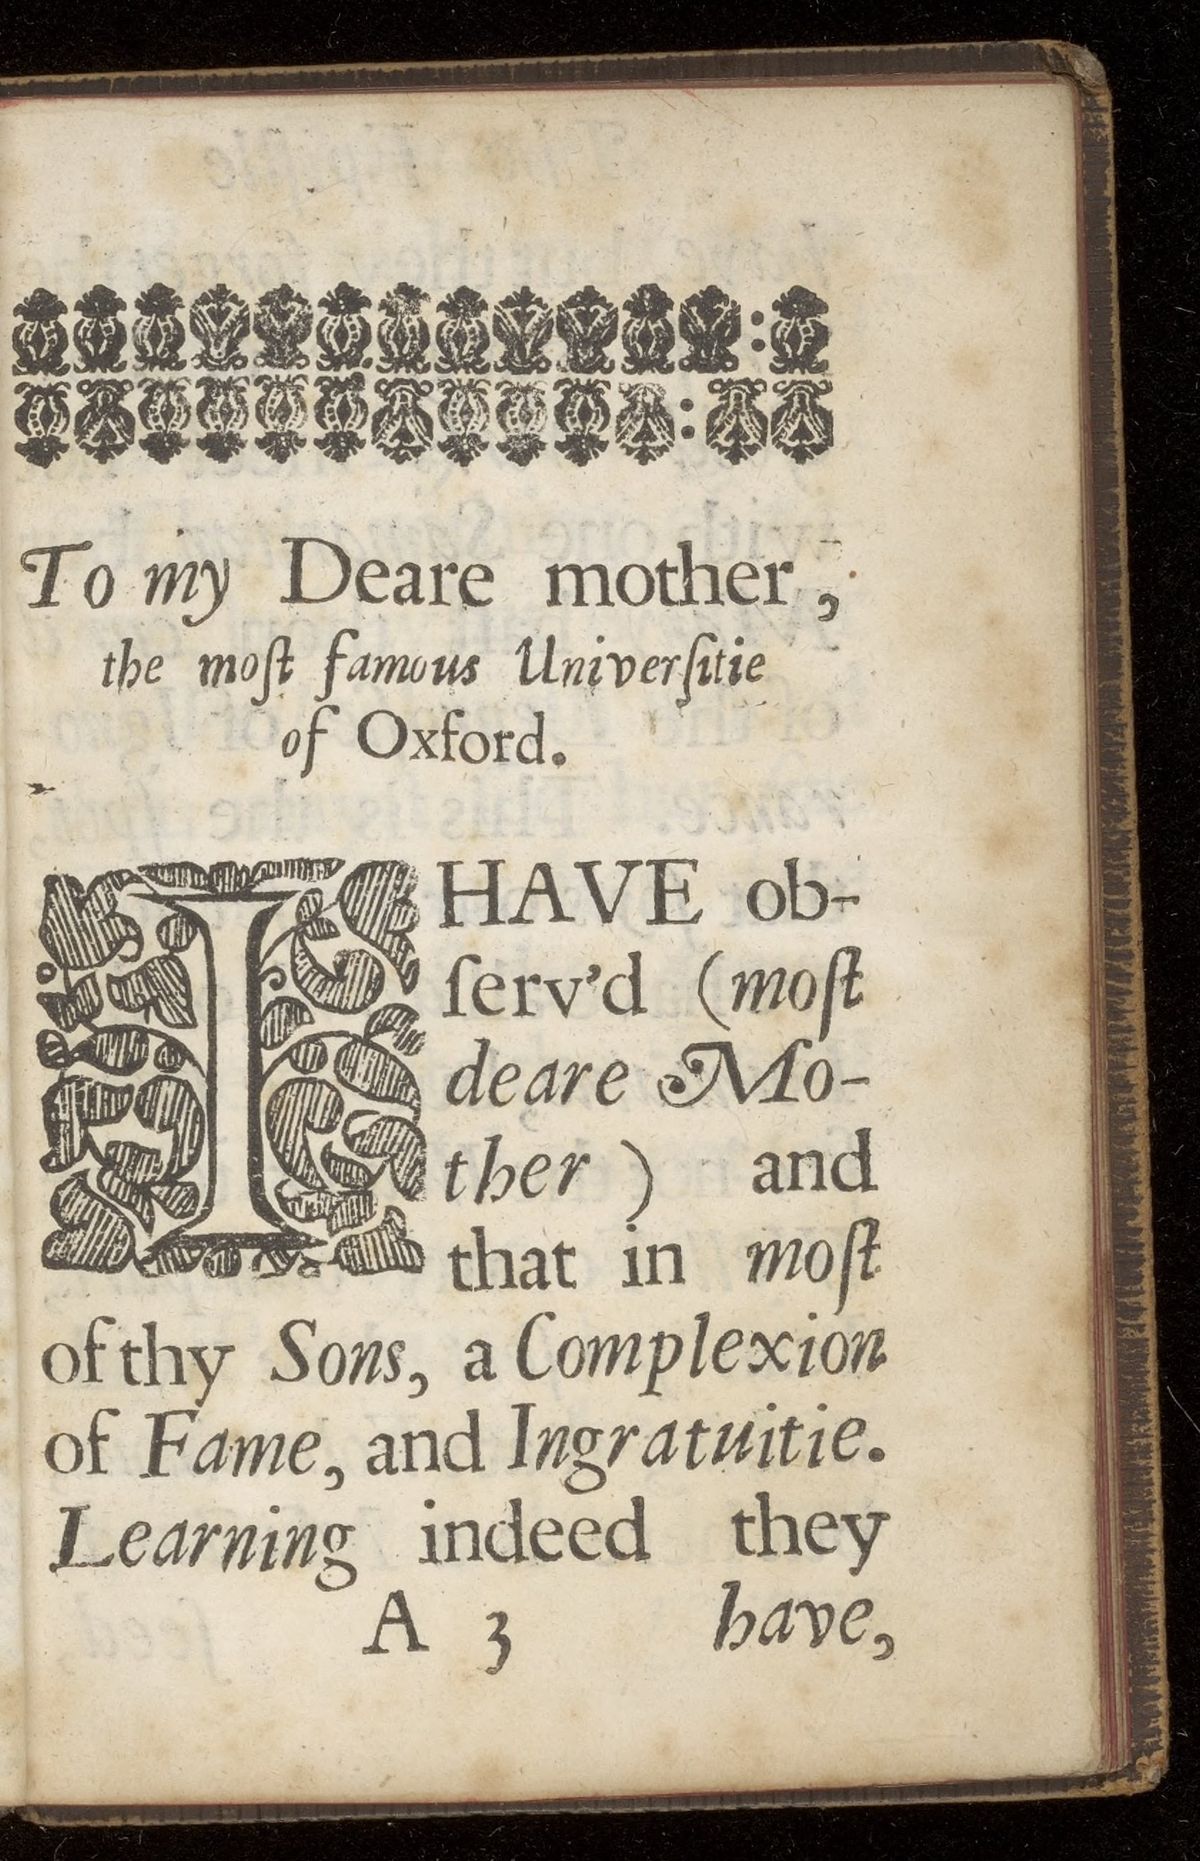 To my Deare mother,
the moſt famous Univerſitie
of Oxford.
I HAVE ob-
ſerv'd (moſt
deare Mo-
ther) and
that in moſt
of thy Sons, a Complexion
of Fame, and Ingratuitie.
Learning indeed they
A 3 have,